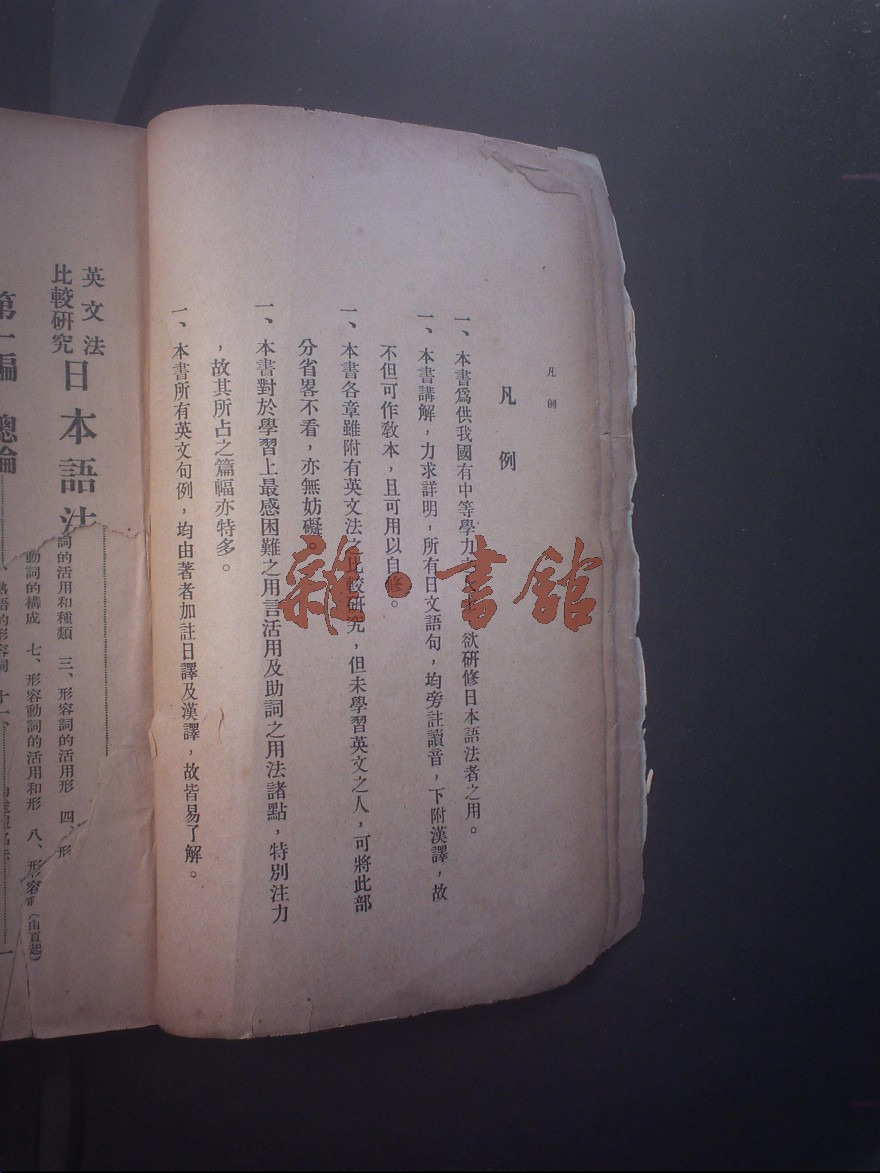 凡例
凡例
一、本書爲供我國有中等學力之人士欲研修日本語法者之用。
一、本書講解，力求詳明，所有日文語句，均旁註讀音，下附漢譯，故
不但可作敎本，且可用以自修。
一、本書各章雖附有英文法之比較研究，但未學習英文之人，可將此部
分省畧不看，亦無妨礙。
一、本書對於學習上最感困難之用言活用及助詞之用法諸點，特別注力
，故其所占之篇幅亦特多。
一、本書所有英文句例，均由著者加註日譯及漢譯，故皆易了解。
雜·書舘
英文法
比較研究
日本語法
詞的活用和種類 三、形容詞的活用形 四、形
動詞的構成 七、形容動詞的活用和形 八、形容 (由頁起)
第一編 總論